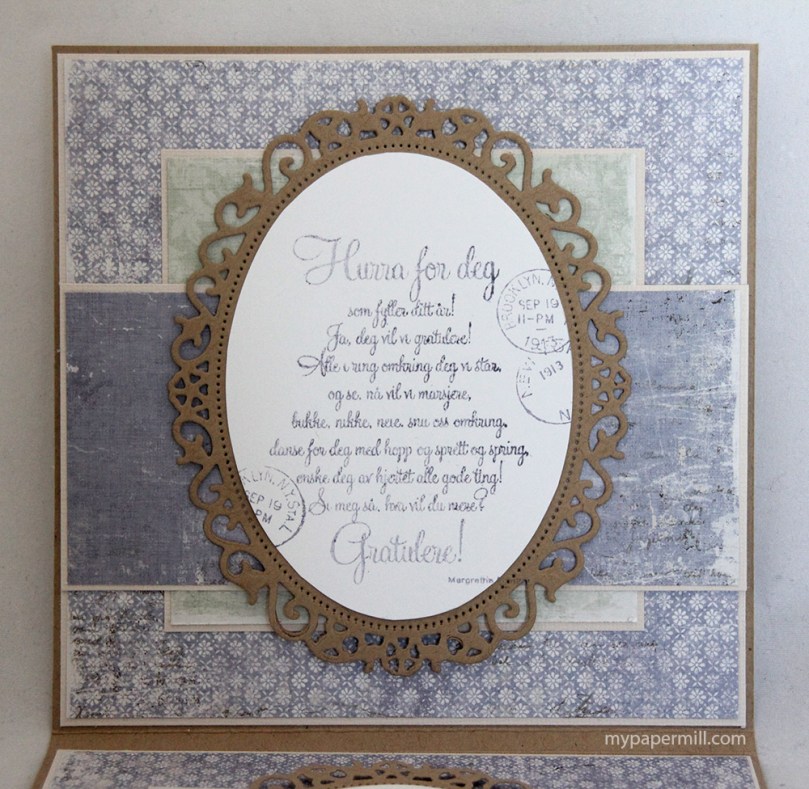 Hurra for deg
som fyller ditt år!
Ja, deg vil vi gratulere!
Alle i ring omkring deg vi står,
og se, nå vil vi marsjere,
bukke, nikke, neie, snu oss omkring,
danse for deg med hopp og sprett og spring,
ønske deg av hjertet alle gode ting!
Si meg så, hva vil du mere?
Gratulere!
Margrethe
BROOKLYN, N.Y.
SEP 19
11-PM
1913
NEW
1913
N
KLYN, N.Y. STA.L
SEP 19
PM
mypapermill.com